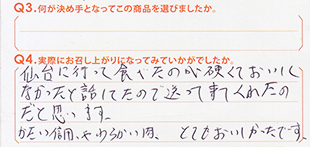 Q3.何が決め手となってこの商品を選びましたか。
Q4.実際にお召し上がりになってみていかがでしたか。
仙台に行って食べたのが硬くておいし
なかったと話してたので送って来てくれたの
だと思います。
かたい信用、やわらかい肉、とてもおいしかったです。